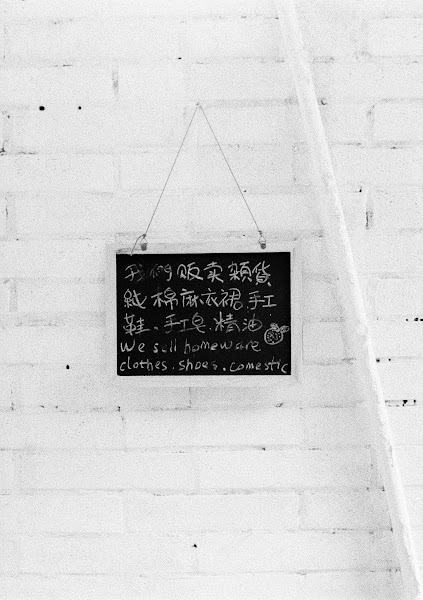 我們販卖雜貨
絨棉麻衣裙.手工
鞋、手工皂.精油
We sell homeware
clothes.shoes.comestic